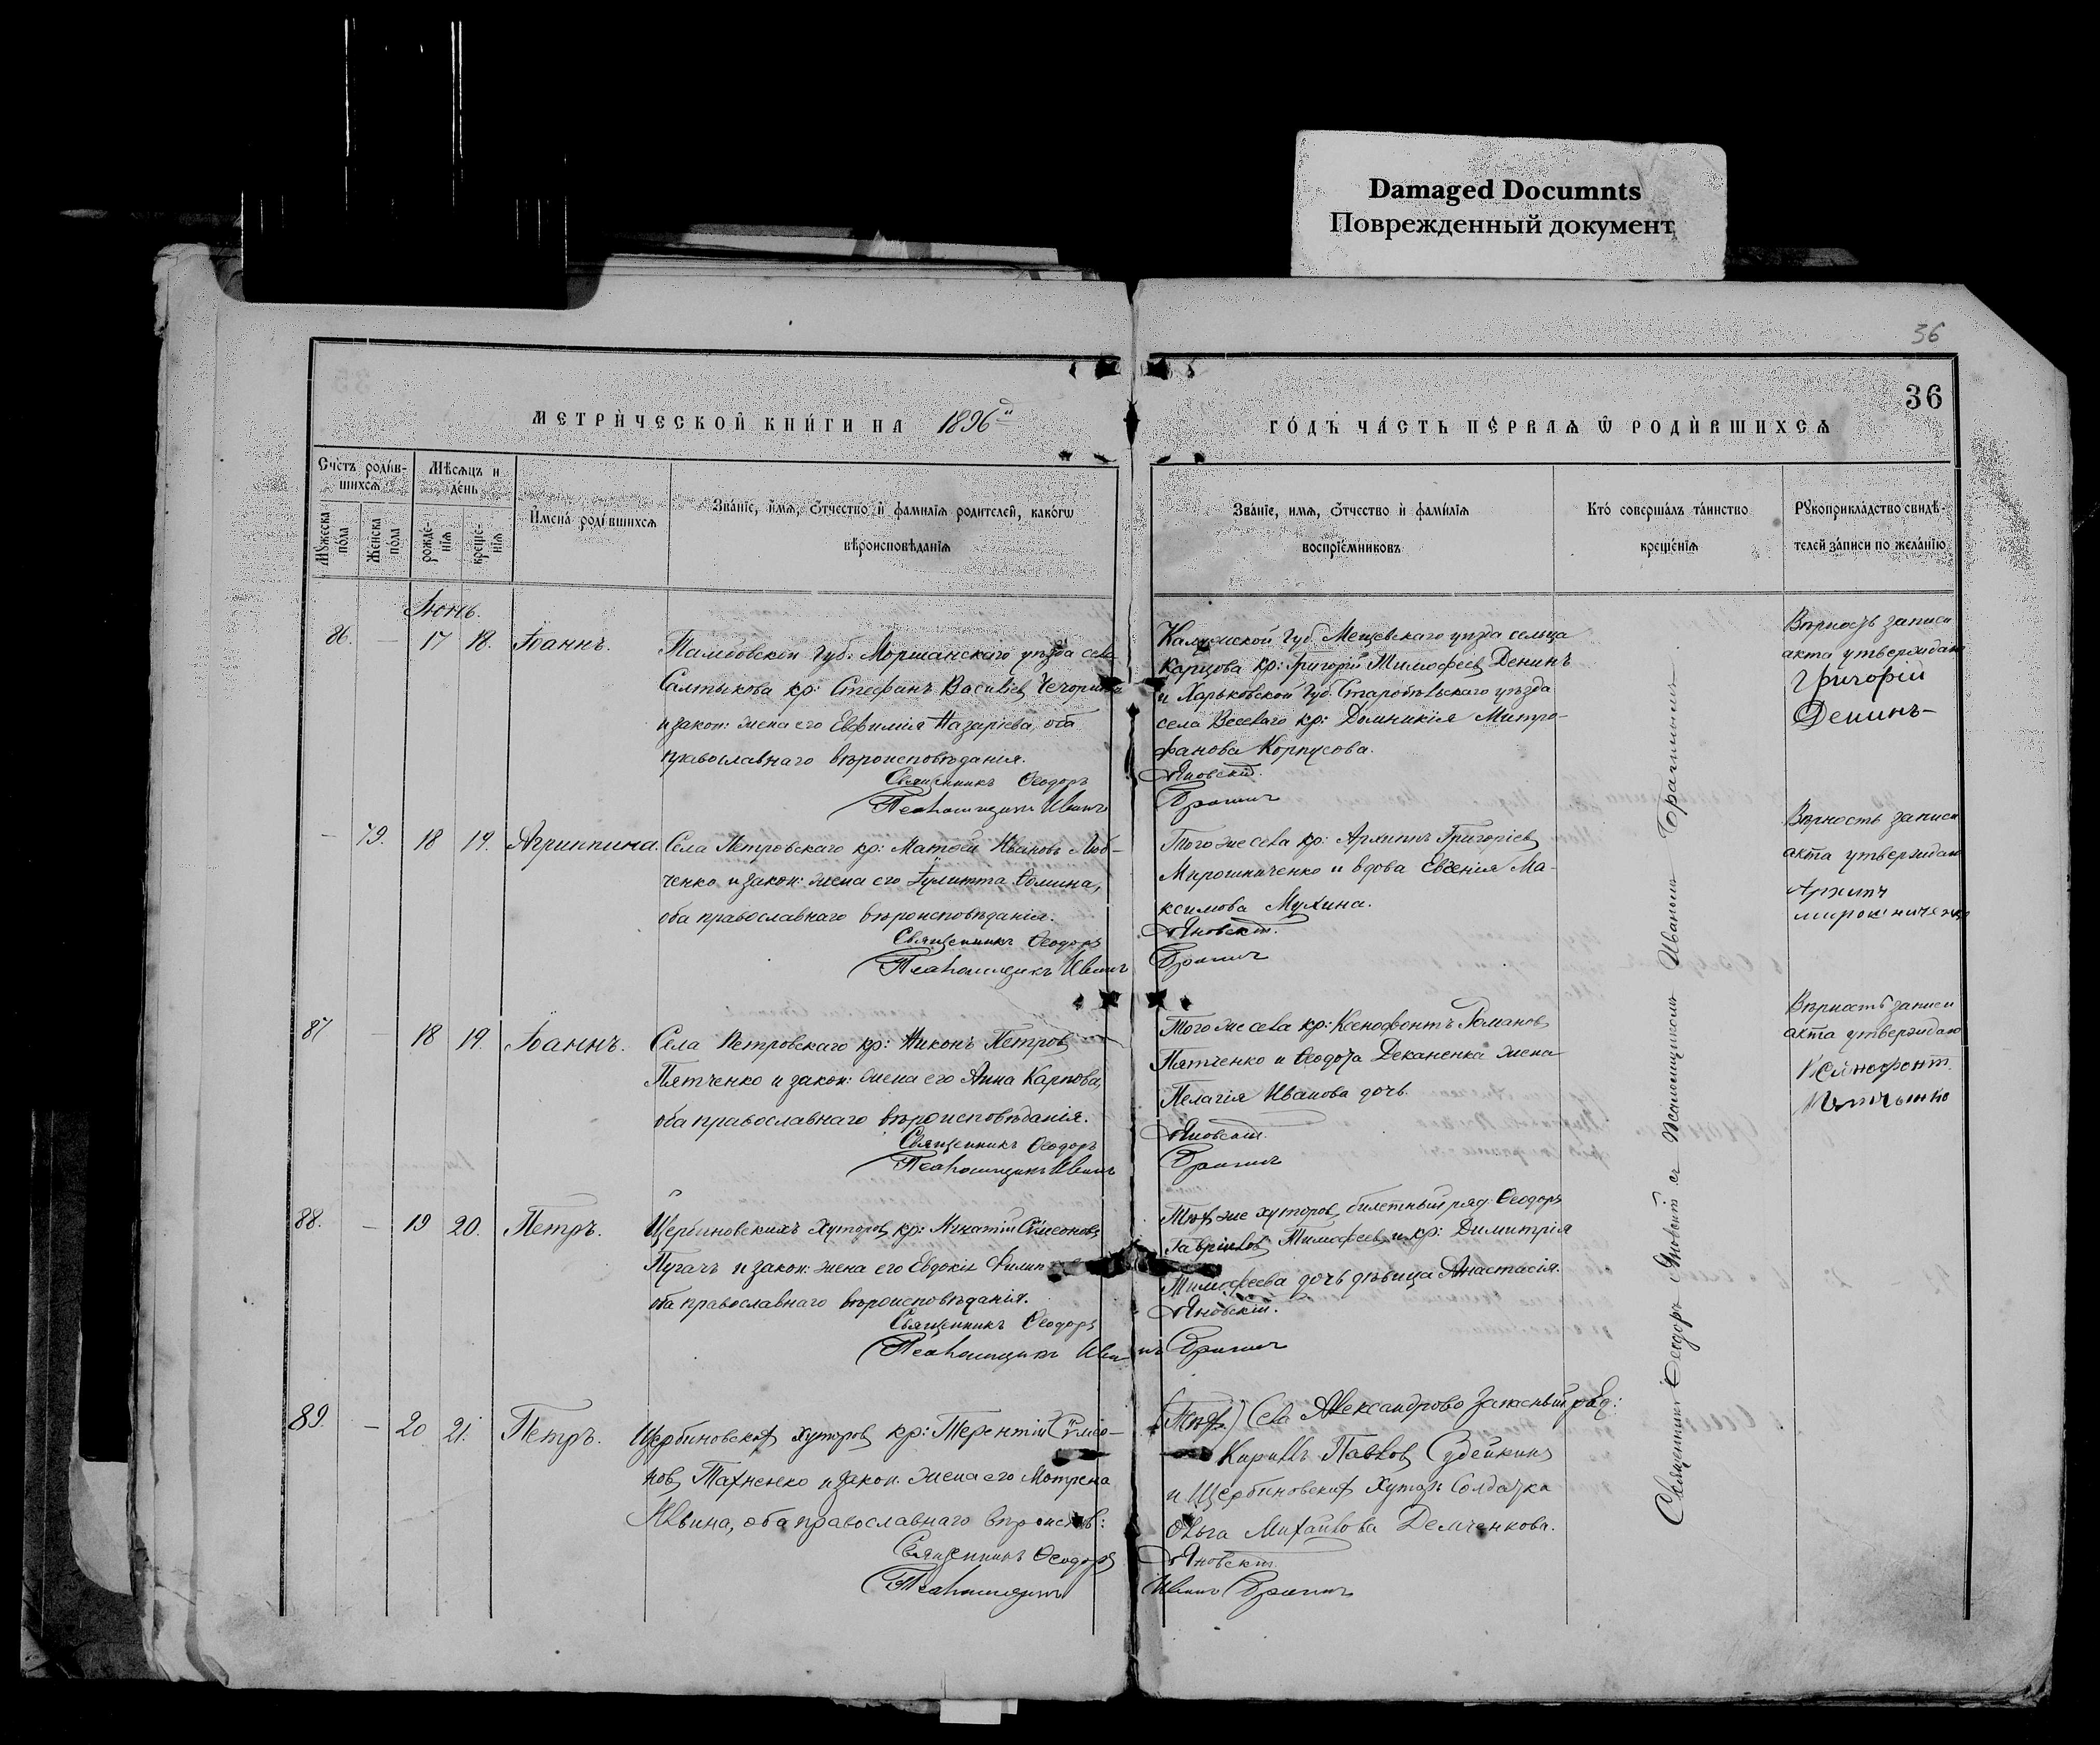 Damaged Documnts
Поврежденный документ
36
36
МЕТРИ́ЧЕСКОЙ КНИ́ГИ НА 1896й
ГО́ДЪ ЧА́СТЬ ПЕ́РВАѦ Ѡ РОДИ́ВШИХСѦ
Сче́тъ роди́в-
шихсѧ
Мѣ́сѧцъ и
де́нь
Мꙋ́жеска
по́ла
Же́нска
по́ла
рожде́-
нїѧ
креще́-
нїѧ
И҆мена̀ роди́вшихсѧ
Зва́нїе, и҆́мѧ, ѻ҆́тчество и҆ фамилїѧ родителей, како́гѡ
вѣроисповѣ́данїѧ
Зва́нїе, имѧ, ѻ҆́тчество и҆ фами́лїѧ
воспрїе́мниковъ
Кто̀ соверша́лъ та́инство
креще́нїѧ
Рꙋкоприкла́дство свидѣ́-
телей за́писи по жела́нїю
Іюнь.
86. — 17 18. Іоаннъ.
Тамбовской губ. Моршанскаго уѣзда села
Салтыкова кр: Стефанъ Васильевъ
и закон: жена его Евфимія Назаріева, оба
православнаго вѣроисповѣданія.
Священникъ Ѳеодоръ
Псаломщикъ Иванъ
Калужской губ. Мещевскаго уѣзда сельца
Карцова кр: Григорій Тимоѳеевъ Денинъ
и Харьковской губ. Старобѣльскаго уѣзда
села Веселаго кр: Домникія Митро-
фанова Корпусова.
Яновскій.
Братинъ
Вѣрность записи
акта утверждаю
Григорій
Денинъ
— 79. 18 19. Агриппина.
Села Петровскаго кр: Матѳей Ивановъ Люб-
ченко и закон: жена его Іулитта Ѳомина,
оба православнаго вѣроисповѣданія.
Священникъ Ѳеодоръ
Псаломщикъ Иванъ
Того же села кр: Архипъ Григоріевъ
Мирошниченко и вдова Евгенія Ма-
ксимова Мухина.
Яновскій.
Братинъ
Вѣрность записи
акта утверждаю
Архипъ
мирошниченко
87 — 18 19. Іоаннъ.
Села Петровскаго кр: Никонъ Петровъ
Пятченко и закон: жена его Анна Карпова,
оба православнаго вѣроисповѣданія.
Священникъ Ѳеодоръ
Псаломщикъ Иванъ
Того же села кр: Ксенофонтъ Романовъ
Пятченко и Ѳеодора Деканенка жена
Пелагія Иванова дочь.
Яновскій.
Братинъ
Вѣрность записи
акта утверждаю
Ксенофонт
88. — 19 20. Петръ.
Щербиновскихъ хуторовъ кр: Игнатій Симеоновъ
Пугачъ и закон: жена его Евдокія Филип
оба православнаго вѣроисповѣданія.
Священникъ Ѳеодоръ
Псаломщикъ Иванъ
Тѣхъ же хуторовъ билетный ряд. Ѳеодоръ
Гавріиловъ Тимоѳеевъ и кр: Димитрія
Тимоѳеева дочь дѣвица Анастасія.
Яновскій.
Братинъ
89. — 20 21. Петръ.
Щербиновскихъ хуторовъ кр: Терентій Симео-
новъ Тахненко и закон. жена его Матрена
оба православнаго вѣроиспов:
Священникъ Ѳеодоръ
Псаломщикъ
Села Александрово запасный ряд:
Кириллъ Павловъ Судейкинъ
и Щербиновскихъ хуторъ солдатка
Ольга Михайлова Демченкова.
Яновскій.
Иванъ Братинъ
Священникъ Ѳеодоръ Яновскій съ Псаломщикомъ Иваномъ Братинымъ